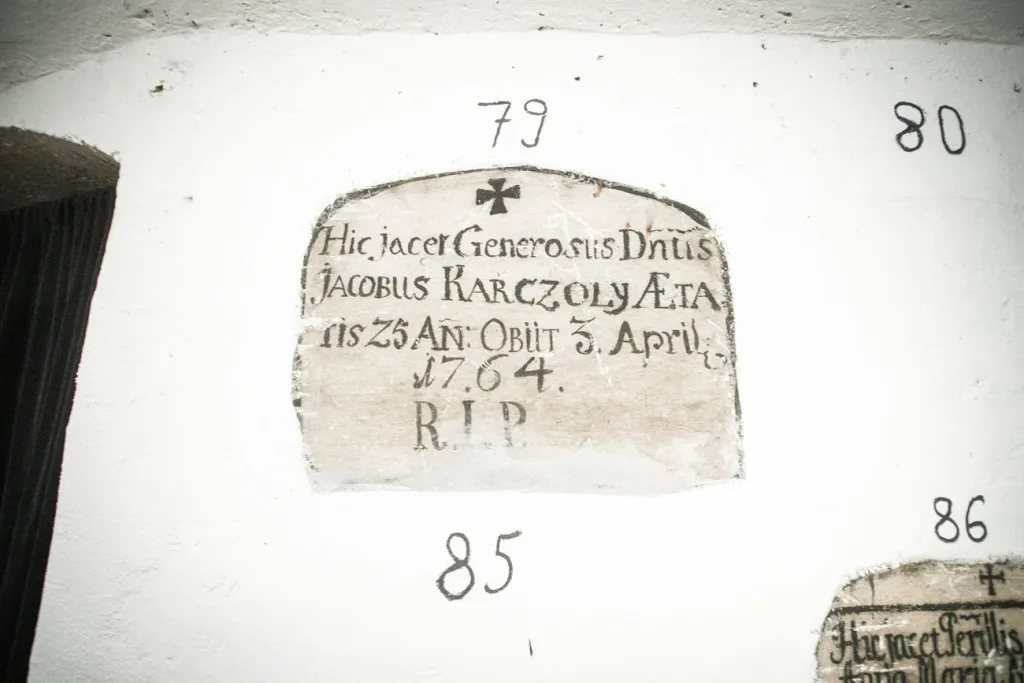 79
80
Hic jacet Generosus Dn̅us
JACOBUS KARCZOLY ÆTA
tis 25 AN̅: OBIIT 3. April:
1764.
R.I.P.
85
86
Hic jacet Per̅illis
Anna Maria